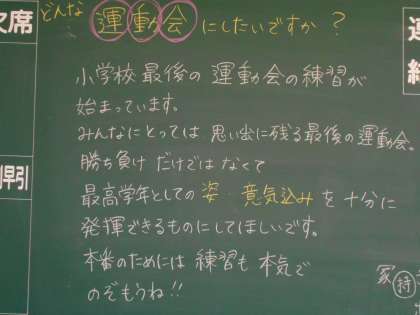 どんな運動会にしたいですか？
小学校最後の運動会の練習が
始まっています。
みんなにとっては思い出に残る最後の運動会。
勝ち負けだけではなくて
最高学年としての姿・意気込みを十分に
発揮できるものにしてほしいです。
本番のためには練習も本気で
のぞもうね!!
欠席
早引
連
家
持